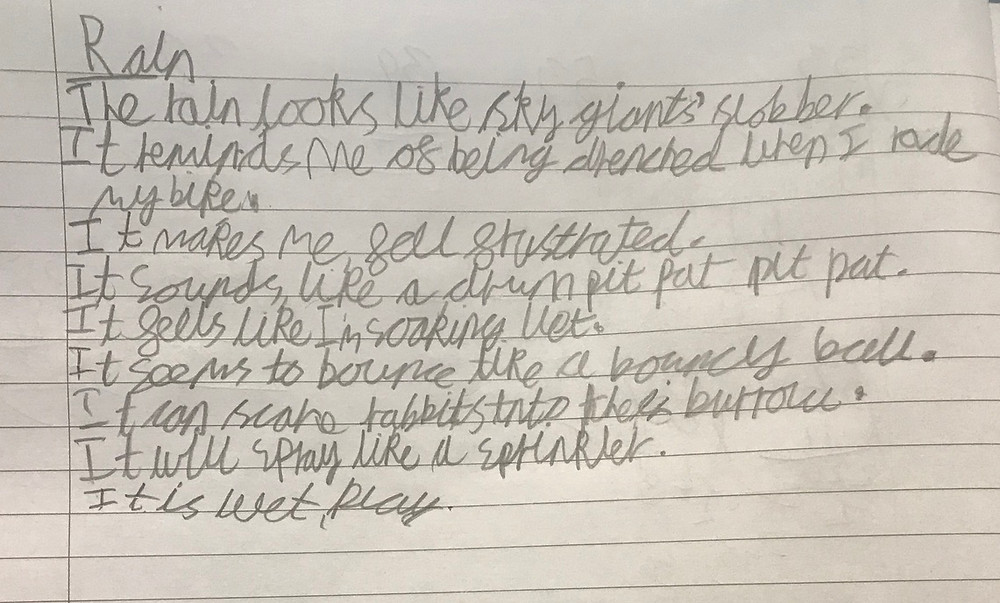 Rain
The rain looks like sky giants' slobber.
It reminds me of being drenched when I rode
my bike.
It makes me feel frustrated.
It sounds like a drum pit pat pit pat.
It feels like I'm soaking wet.
It seems to bounce like a bouncy ball.
It can scare rabbits into their burrow.
It will spray like a sprinkler.
It is wet play.